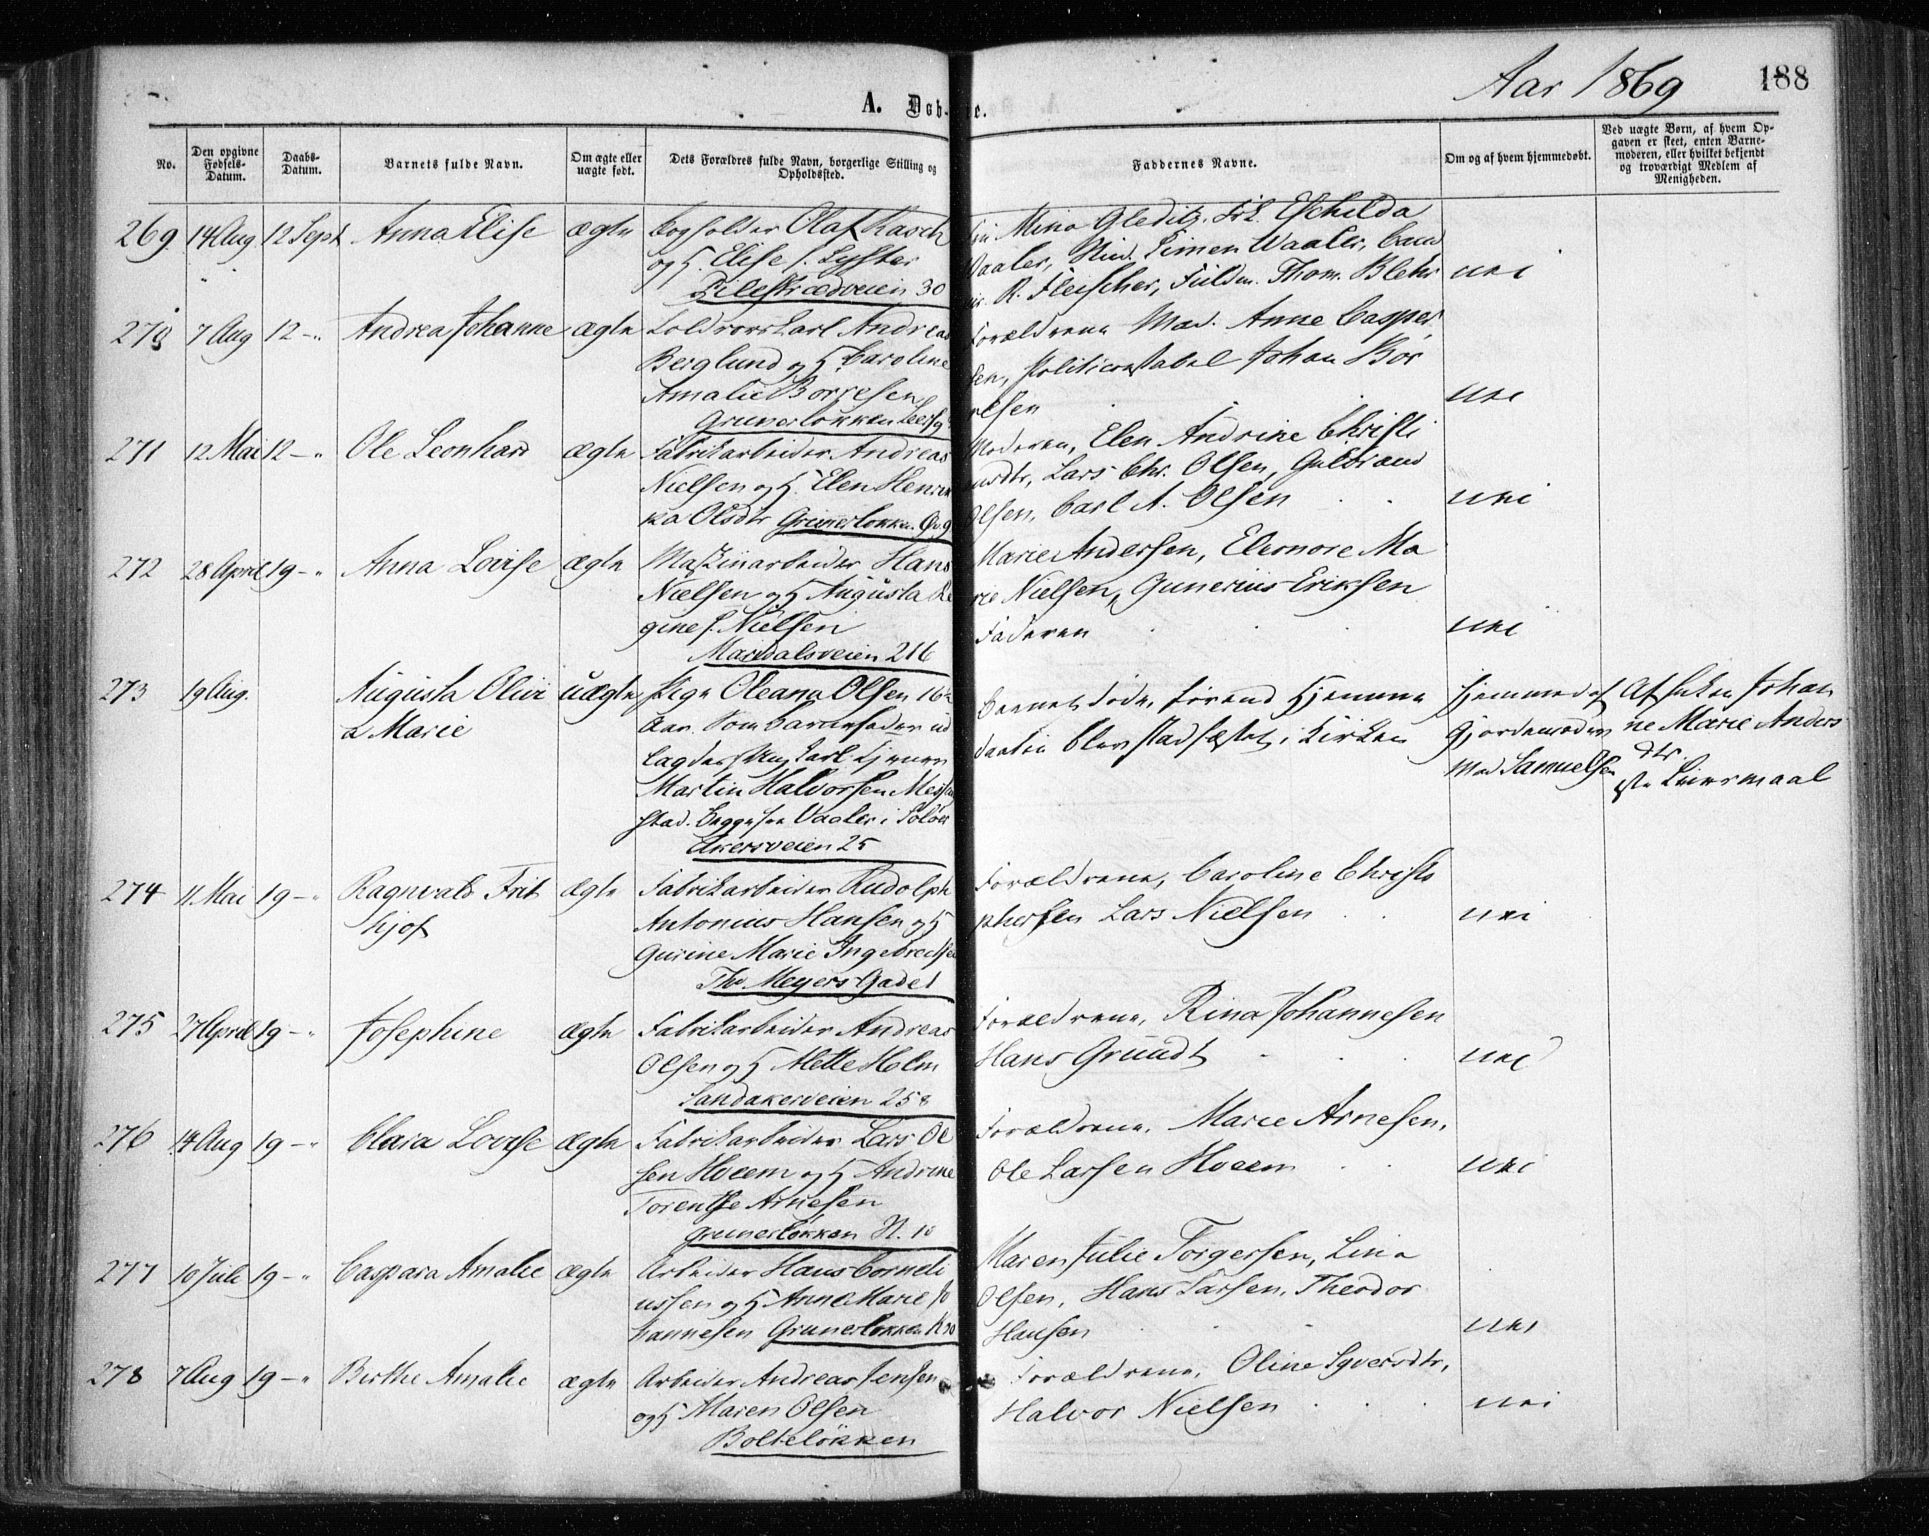 Aar 1869
188
A. Døb-
e.
No.
Den opgivne Fødsels-Datum.
Daabs-Datum.
Barnets fulde Navn.
Om ægte eller uægte født.
Dets Forældres fulde Navn, borgerlige Stilling og Opholdssted.
Faddernes Navne.
Om og af hvem hjemmedøbt.
Ved uægte Børn, af hvem Opgaven er skeet, enten Barnemoderen, eller hvilket bekjendt og troværdigt Medlem af Menigheden.
269 14 Aug 12 Sept Anna Elise ægte Bogholder Olaf Rasch
og H. Elise f. Lyster
Pilestrædveien 30
Mina Gleditz, Frk. Eschilda
Waaler, Stud. Simen Waaler, Cand
R. Fleischer, Fuldm. Thom. Blehr
nei
270 7 Aug 12 -"- Andrea Johanne ægte Andreas
Berglund og H. Caroline
Amalie Borresen
Grunerløkken
Forældrene Mad. Anne Casper
sen, Politiconstabel Johan Bor
resen
nei
271 12 Mai 12 -"- Ole Leonhard ægte Fabrikarbeider Andreas
Nielsen og H. Elen Henrik
ka Olsdtr Grunerløkken
Moderen, Elen Andrine Christi
ansdtr, Lars Chr. Olsen, Gulbrand
Olsen, Carl A. Olsen
nei
272 28 April 19 -"- Anna Lovise ægte Maskinarbeider Hans
Nielsen og H Augusta Re
gine f. Nielsen
Maridalsveien 216
Marie Andersen, Eleonore Ma
rie Nielsen, Gunerius Eriksen
Faderen
nei
273 19 Aug. Augusta Olivi
a Marie
uægte Pige Oleana Olsen
Aar. Som Barnefader ud
lagdes Ungkarl
Martin Halvorsen
stad. Vaaler i Soløer
Akersveien 25
Barnet døde, førend Hjemme
daaben blev stadfæstet i Kirken
Hjemmed. af
Gjordemoder
Mad Samuelsen
Af Enken Johan
ne Marie Anders
dtr
Leiermaal
274 11 Mai 19 -"- Ragnvald Frit
hjof
ægte Fabrikarbeider Rudolph
Antonius Hansen og H
Gurine Marie Ingebredtsen
Thv. Meyers Gade 1
Forældrene, Caroline Christo
phersen Lars Nielsen
nei
275 27 April 19 -"- Josephine ægte Fabrikarbeider Andreas
Olsen og H Mette Holm
Sandakerveien 258
Forældrene, Rina Johannesen
Hans Grundt
nei
276 14 Aug 19 -"- Clara Lovise ægte Fabrikarbeider Lars Ol
sen Hveem og H Andrine
Torentse Arnesen
Grunerløkken N. 10
Forældrene, Marie Arnesen,
Ole Larsen Hveem
nei
277 10 Juli 19 -"- Caspara Amalie ægte Arbeider Hans Corneli
ussen og H Anne Marie Jo
hannesen Grunerløkken K 30
Maren Julie Torgersen, Lina
Olsen, Hans Larsen, Theodor
Hansen
nei
278 7 Aug 19 -"- Berthe Amalie ægte Arbeider Andreas Jensen
og H Maren Olsen
Bolteløkken
Forældrene, Oline Syversdtr,
Halvor Nielsen
nei